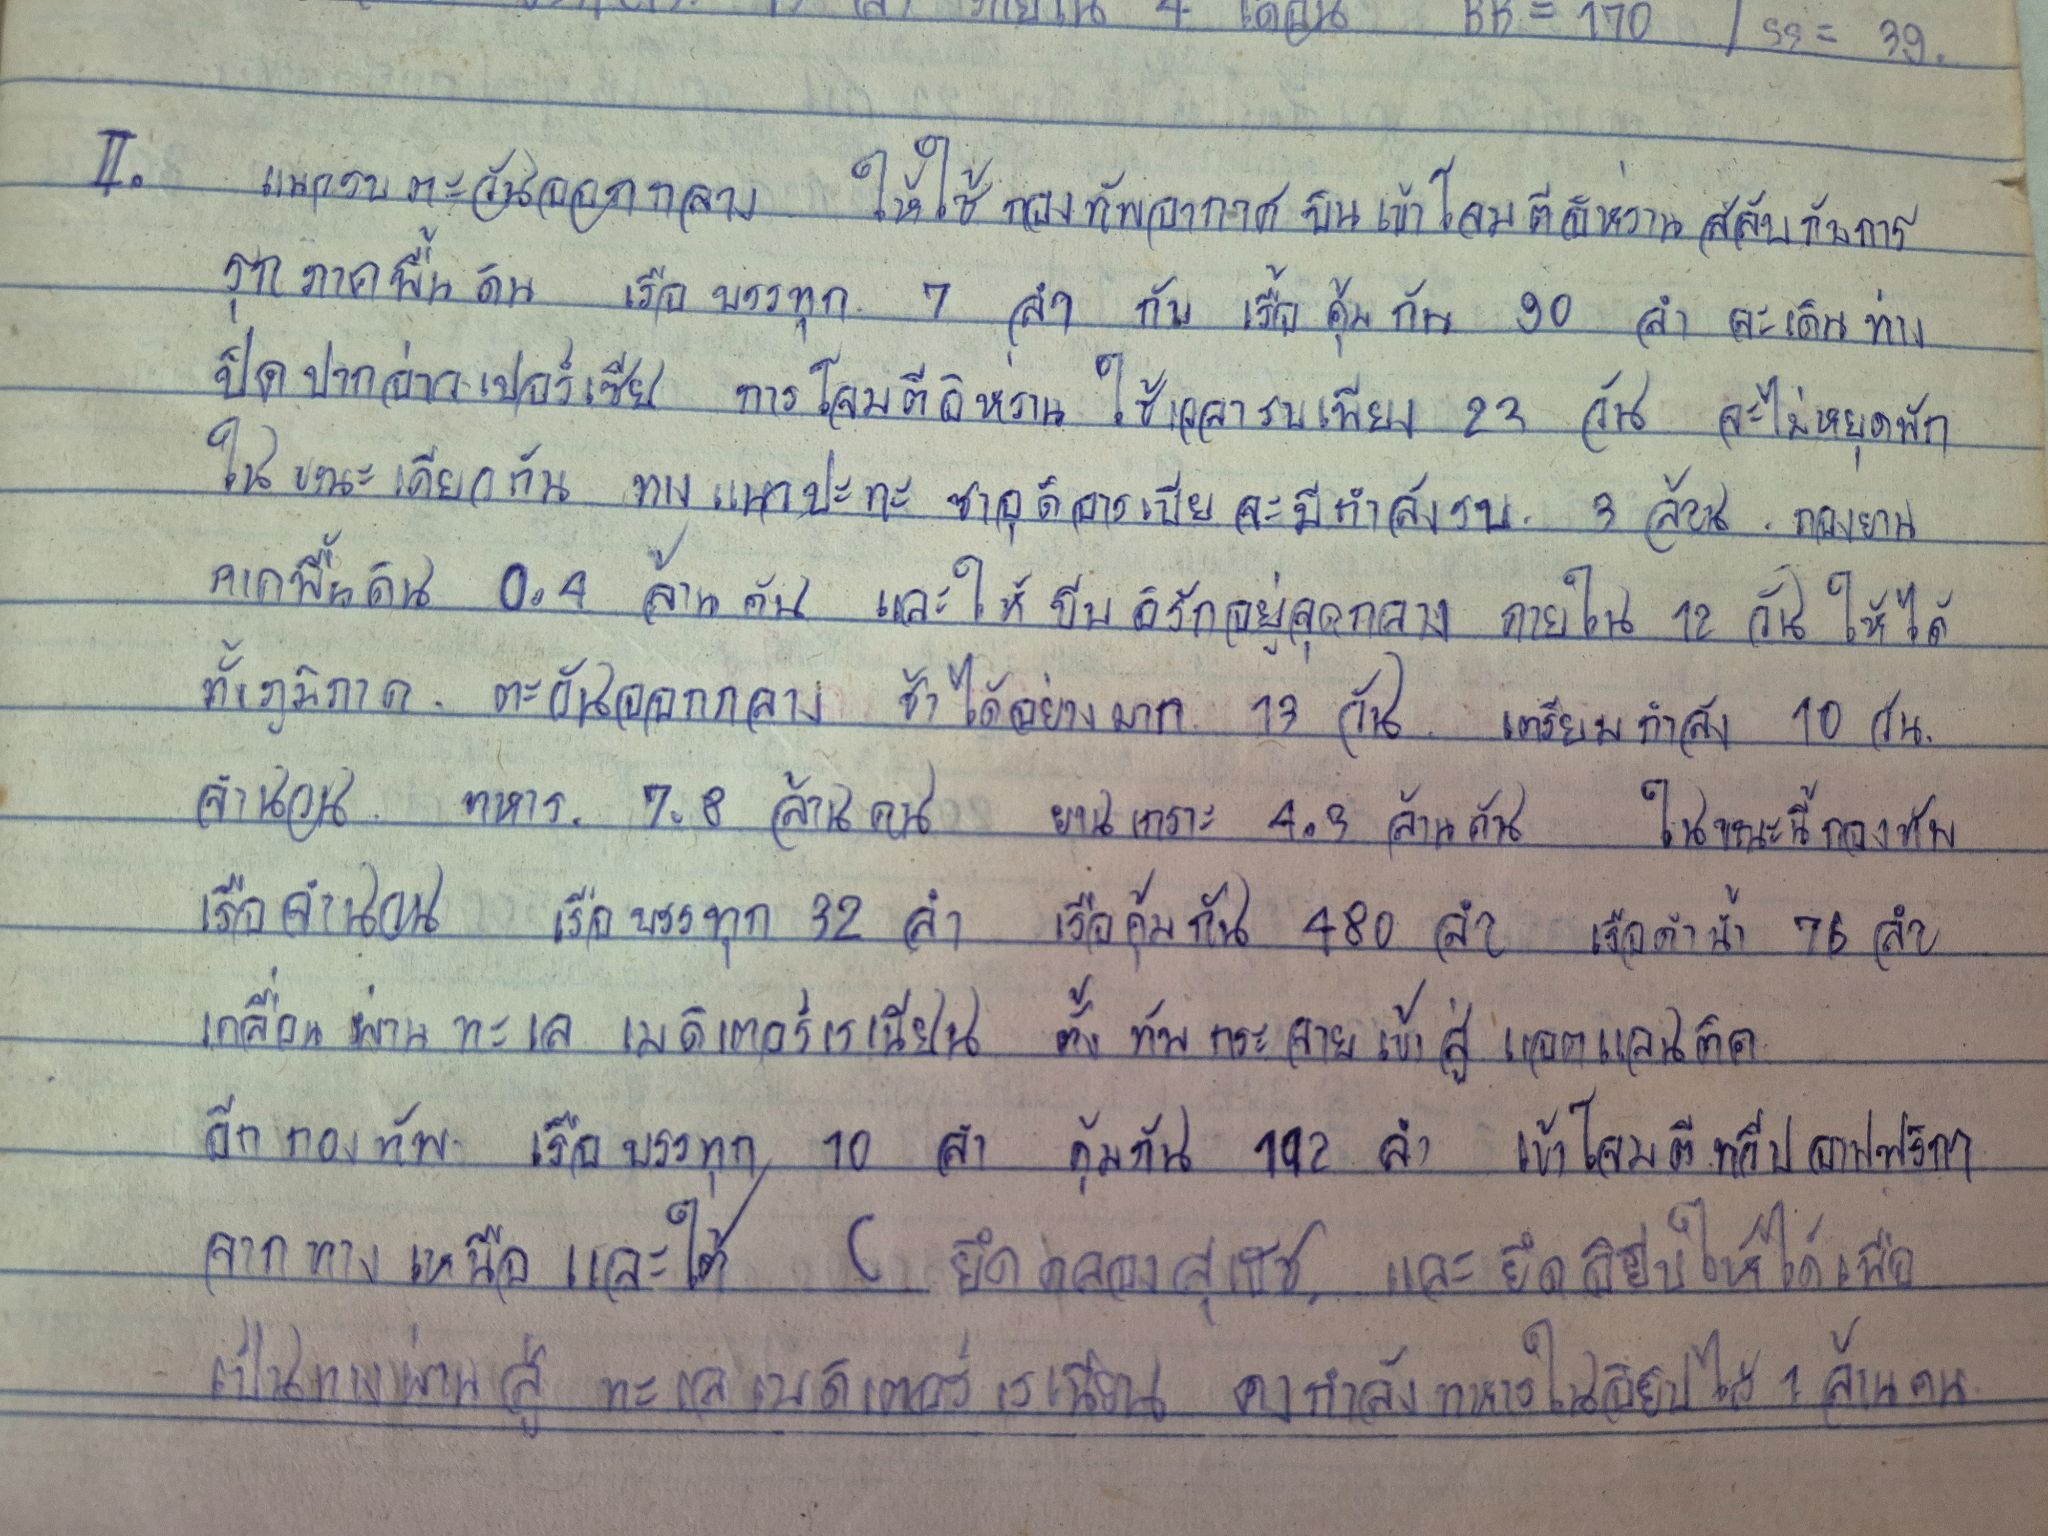 4 เดือน BB = 170 / SS = 39.
II. แนวรบตะวันออกกลาง ให้ใช้กองทัพอากาศบินเข้าโจมตีอิหร่านสลับกับการ
รุกภาคพื้นดิน เรือบรรทุก 7 ลำ กับ เรือคุ้มกัน 90 ลำ จะเดินทาง
ปิดปากอ่าวเปอร์เซีย การโจมตีอิหร่าน ใช้เวลารบเพียง 23 วัน จะไม่หยุดพัก
ในขณะเดียวกัน ทางแนวปะทะ ซาอุดิอารเบียจะมีกำลังรบ 3 ล้าน. กองยาน
ภาคพื้นดิน 0.4 ล้านคัน และให้บีบอิรักอยู่จุดกลาง ภายใน 12 วัน ให้ได้
ทั้งภูมิภาค. ตะวันออกกลาง ช้าได้อย่างมาก 13 วัน เตรียมกำลัง 10 วัน.
จำนวน ทหาร. 7.8 ล้านคน ยานเกราะ 4.3 ล้านคัน ในขณะนี้กองทัพ
เรือจำนวน เรือบรรทุก 32 ลำ เรือคุ้มกัน 480 ลำ เรือดำน้ำ 76 ลำ
เคลื่อนผ่านทะเล เมดิเตอร์เรเนียน ตั้งทัพกระจายเข้าสู่ แอตแลนติค
อีกกองทัพ เรือบรรทุก 10 ลำ คุ้มกัน 192 ลำ เข้าโจมตีทวีปอาฟฟริกา
จากทางเหนือและใต้ ( ยึดคลองสุเอช และ ยึดอียิปให้ได้เพื่อ
เป็นทางผ่านสู่ ทะเลเมดิเตอร์เรเนียน คงกำลังทหารในอียิปไว้ 1 ล้านคน.